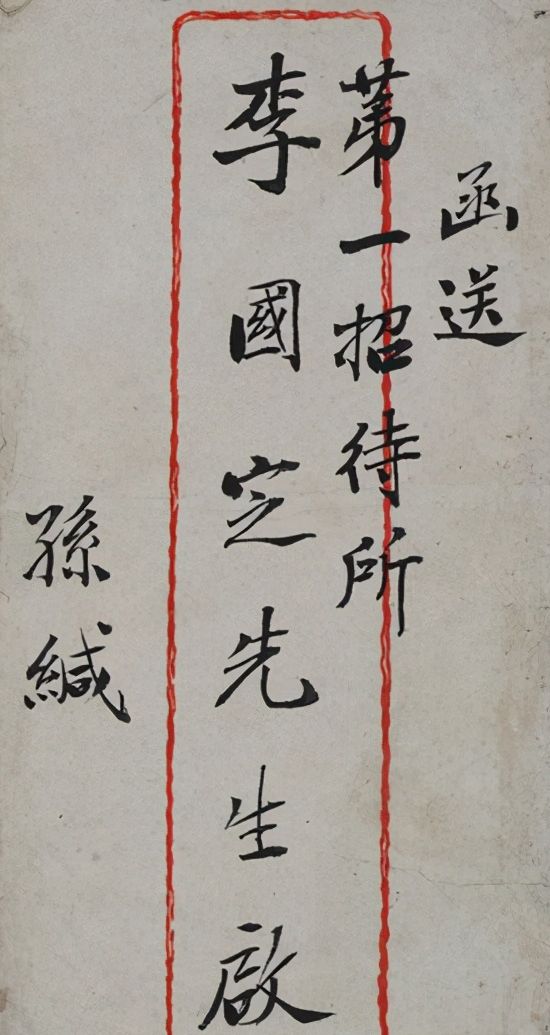 函送
第一招待所
李國定先生啟
孫緘